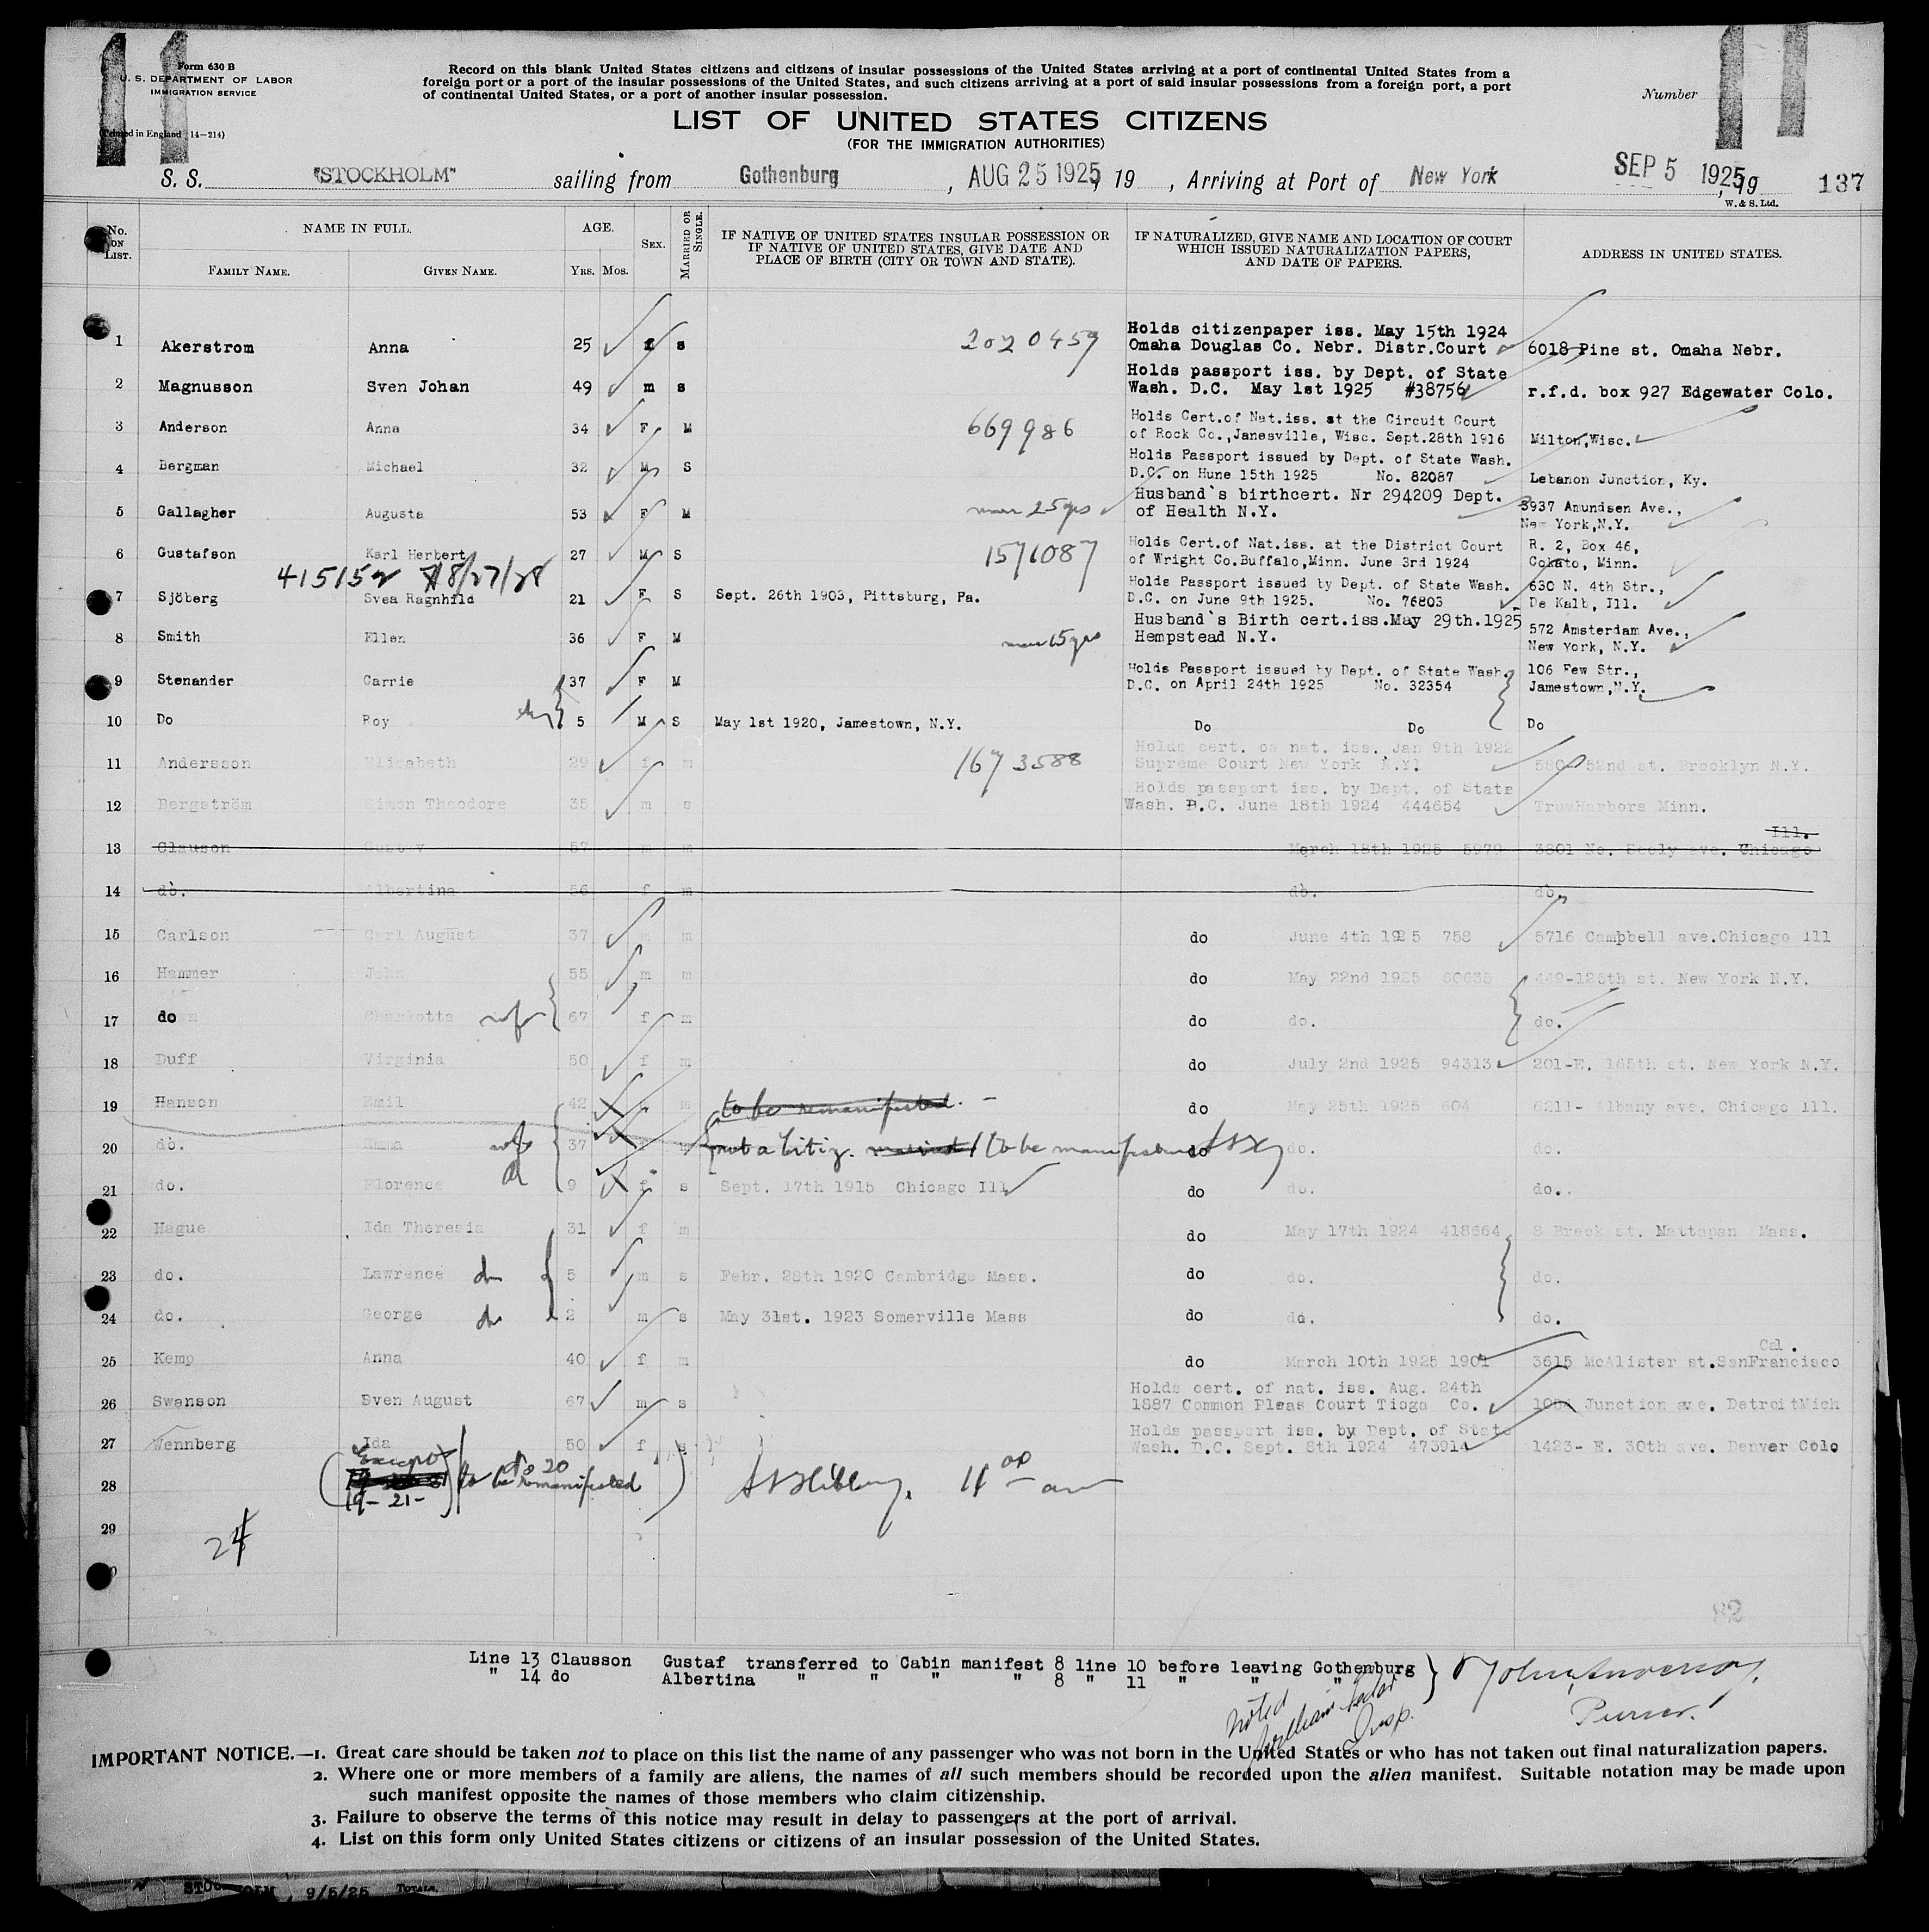 Form 630 B
U. S. DEPARTMENT OF LABOR
IMMIGRATION SERVICE
(Printed in England 14—214)
Record on this blank United States citizens and citizens of insular possessions of the United States arriving at a port of continental United States from a
foreign port or a port of the insular possessions of the United States, and such citizens arriving at a port of said insular possessions from a foreign port, a port
of continental United States, or a port of another insular possession.
Number
LIST OF UNITED STATES CITIZENS
(FOR THE IMMIGRATION AUTHORITIES)
S. S. "STOCKHOLM" sailing from Gothenburg, AUG 25 1925, 19 , Arriving at Port of New York SEP 5 1925, 19 137
W. & S. Ltd.
No. ON LIST. NAME IN FULL. AGE. SEX. MARRIED OR SINGLE. IF NATIVE OF UNITED STATES INSULAR POSSESSION OR IF NATIVE OF UNITED STATES, GIVE DATE AND PLACE OF BIRTH (CITY OR TOWN AND STATE). IF NATURALIZED, GIVE NAME AND LOCATION OF COURT WHICH ISSUED NATURALIZATION PAPERS, AND DATE OF PAPERS. ADDRESS IN UNITED STATES.
FAMILY NAME. GIVEN NAME. YRS. MOS.
Holds citizenpaper iss. May 15th 1924
1 Akerstrom Anna 25 f s 2020459 Omaha Douglas Co. Nebr. Distr.Court 6018 Pine st. Omaha Nebr.
Holds passport iss. by Dept. of State
2 Magnusson Sven Johan 49 m s Wash. D.C. May 1st 1925 #38756 r.f.d. box 927 Edgewater Colo.
Holds Cert.of Nat.iss. at the Circuit Court
3 Anderson Anna 34 F M 669986 of Rock Co.,Janesville, Wisc. Sept.28th 1916 Milton,Wisc.
Holds Passport issued by Dept. of State Wash.
4 Bergman Michael 32 M S D.C. on Hune 15th 1925 No. 82087 Lebanon Junction, Ky.
Husband`s birthcert. Nr 294209 Dept. 3937 Amundsen Ave.,
5 Gallagher Augusta 53 F M 25 yrs of Health N.Y. New York,N.Y.
Holds Cert.of Nat.iss. at the District Court R. 2, Box 46,
6 Gustafson Karl Herbert 27 M S 1571087 of Wright Co.Buffalo,Minn. June 3rd 1924 Cokato, Minn.
415152 8/27/28
Holds Passport issued by Dept. of State Wash. 630 N. 4th Str.,
7 Sjöberg Svea Ragnhild 21 F S Sept. 26th 1903, Pittsburg, Pa. D.C. on June 9th 1925. No. 76803 De Kalb, Ill.
Husband`s Birth cert.iss.May 29th.1925 572 Amsterdam Ave.,
8 Smith Ellen 36 F M 15 yrs Hempstead N.Y. New York, N.Y.
Holds Passport issued by Dept. of State Wash. 106 Few Str.,
9 Stenander Carrie 37 F M D.C. on April 24th 1925 No. 32354 Jamestown,N.Y.
10 Do Roy 5 M S May 1st 1920, Jamestown, N.Y. Do Do Do
Holds cert. of nat. iss. Jan 9th 1922
11 Andersson Elisabeth 29 f m 1673588 Supreme Court New York N.Y. 580- 52nd st. Brooklyn N.Y.
Holds passport iss. by Dept. of State
12 Bergström Simon Theodore 35 m s Wash. D.C. June 18th 1924 444654 TrueHarbors Minn.
Ill.
13 Clauson Gustav 57 m m March 18th 1925 5970 3801 No. Seely ave. Chicago
14 do. Albertina 56 f m do. do.
15 Carlson Carl August 37 m m do June 4th 1925 758 5716 Campbell ave.Chicago Ill
16 Hammer John 55 m m do May 22nd 1925 60635 449-125th st. New York N.Y.
17 do Charlotta wife 67 f m do do. do.
18 Duff Virginia 50 f m do July 2nd 1925 94313 201-E. 165th st. New York N.Y.
19 Hanson Emil 42 m to be remanifested. do May 25th 1925 604 6211- Albany ave. Chicago Ill.
20 do. Emma wife 37 not a Citiz. to be manifested do do. do.
21 do. Florence 9 f s Sept. 17th 1915 Chicago Ill do do. do..
22 Hague Ida Theresia 31 f m do May 17th 1924 418664 8 Breck st. Mattapan Mass.
23 do. Lawrence 5 m s Febr. 28th 1920 Cambridge Mass. do do. do.
24 do. George 2 m s May 31st. 1923 Somerville Mass do do. do.
Cal.
25 Kemp Anna 40 f m do March 10th 1925 1901 3615 McAlister st.SanFrancisco
Holds cert. of nat. iss. Aug. 24th
26 Swanson Sven August 67 m s 1887 Common Pleas Court Tioga Co. 1054 Junction ave. DetroitMich
Holds passport iss. by Dept. of State
27 Wennberg Ida 50 f s Wash. D.C. Sept. 8th 1924 473914 1423- E. 30th ave. Denver Colo
28 19-21- 20 to be remanifested 11 00 am
29
24
82
Line 13 Clausson Gustaf transferred to Cabin manifest 8 line 10 before leaving Gothenburg
" 14 do Albertina " " " " 8 " 11 " " "
Noted
Insp.
Purser.
IMPORTANT NOTICE.—1. Great care should be taken not to place on this list the name of any passenger who was not born in the United States or who has not taken out final naturalization papers.
2. Where one or more members of a family are aliens, the names of all such members should be recorded upon the alien manifest. Suitable notation may be made upon
such manifest opposite the names of those members who claim citizenship.
3. Failure to observe the terms of this notice may result in delay to passengers at the port of arrival.
4. List on this form only United States citizens or citizens of an insular possession of the United States.
STOCKHOLM 9/5/25 TOTALS.